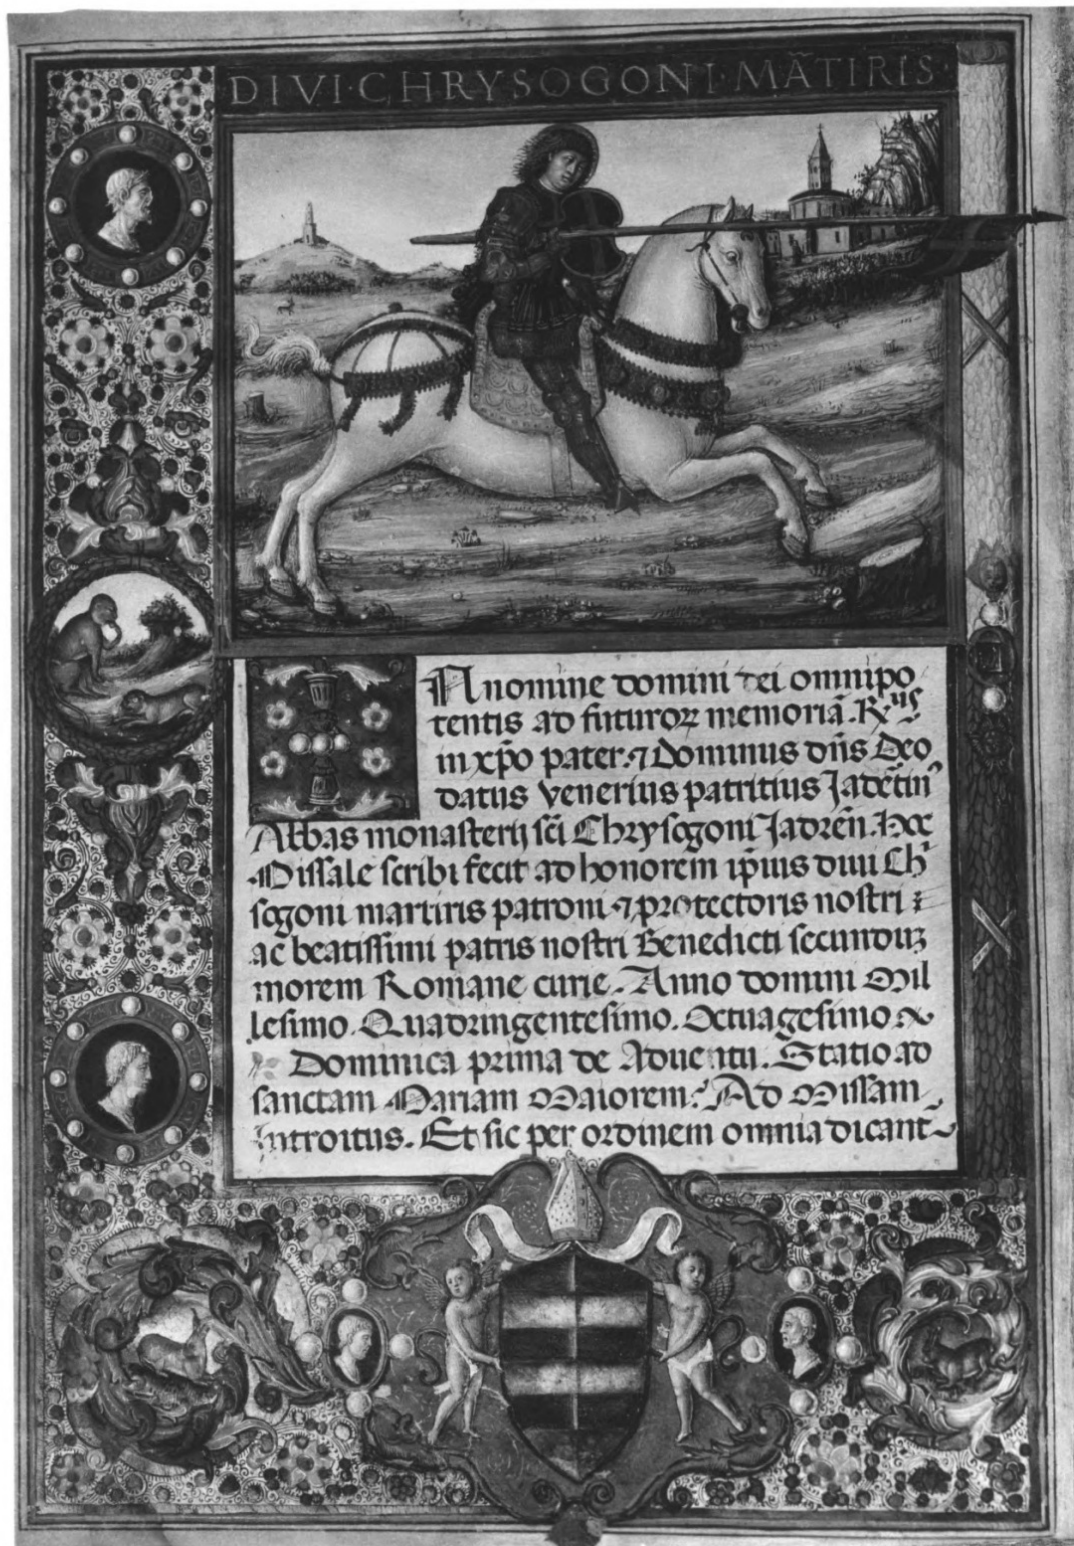 DIVI·CHRYSOGONI·MÃTIRIS·
IN nomine domini dei omnipo
tentis ad futuroꝝ memoriã. Rᵘˢ
in xp̃o pater ⁊ Dominus dñs Deo
datus venerius patritius Jadẽtinꝰ
Abbas monasterij sc̃i Chrysogoni Jadreñ. Hoc
Missale scribi fecit ad honorem ip̃ius diui Ch
sogoni martiris patroni ⁊ protectoris nostri :
ac beatissimi patris nostri Benedicti secunduꝫ
morem Romane curie. Anno domini Mil
lesimo. Quadringentesimo. Octuagesimo
Dominica prima de Aduentu. Statio ad
sanctam Mariam Maiorem. Ad Missam
Introitus. Et sic per ordinem omnia dicant